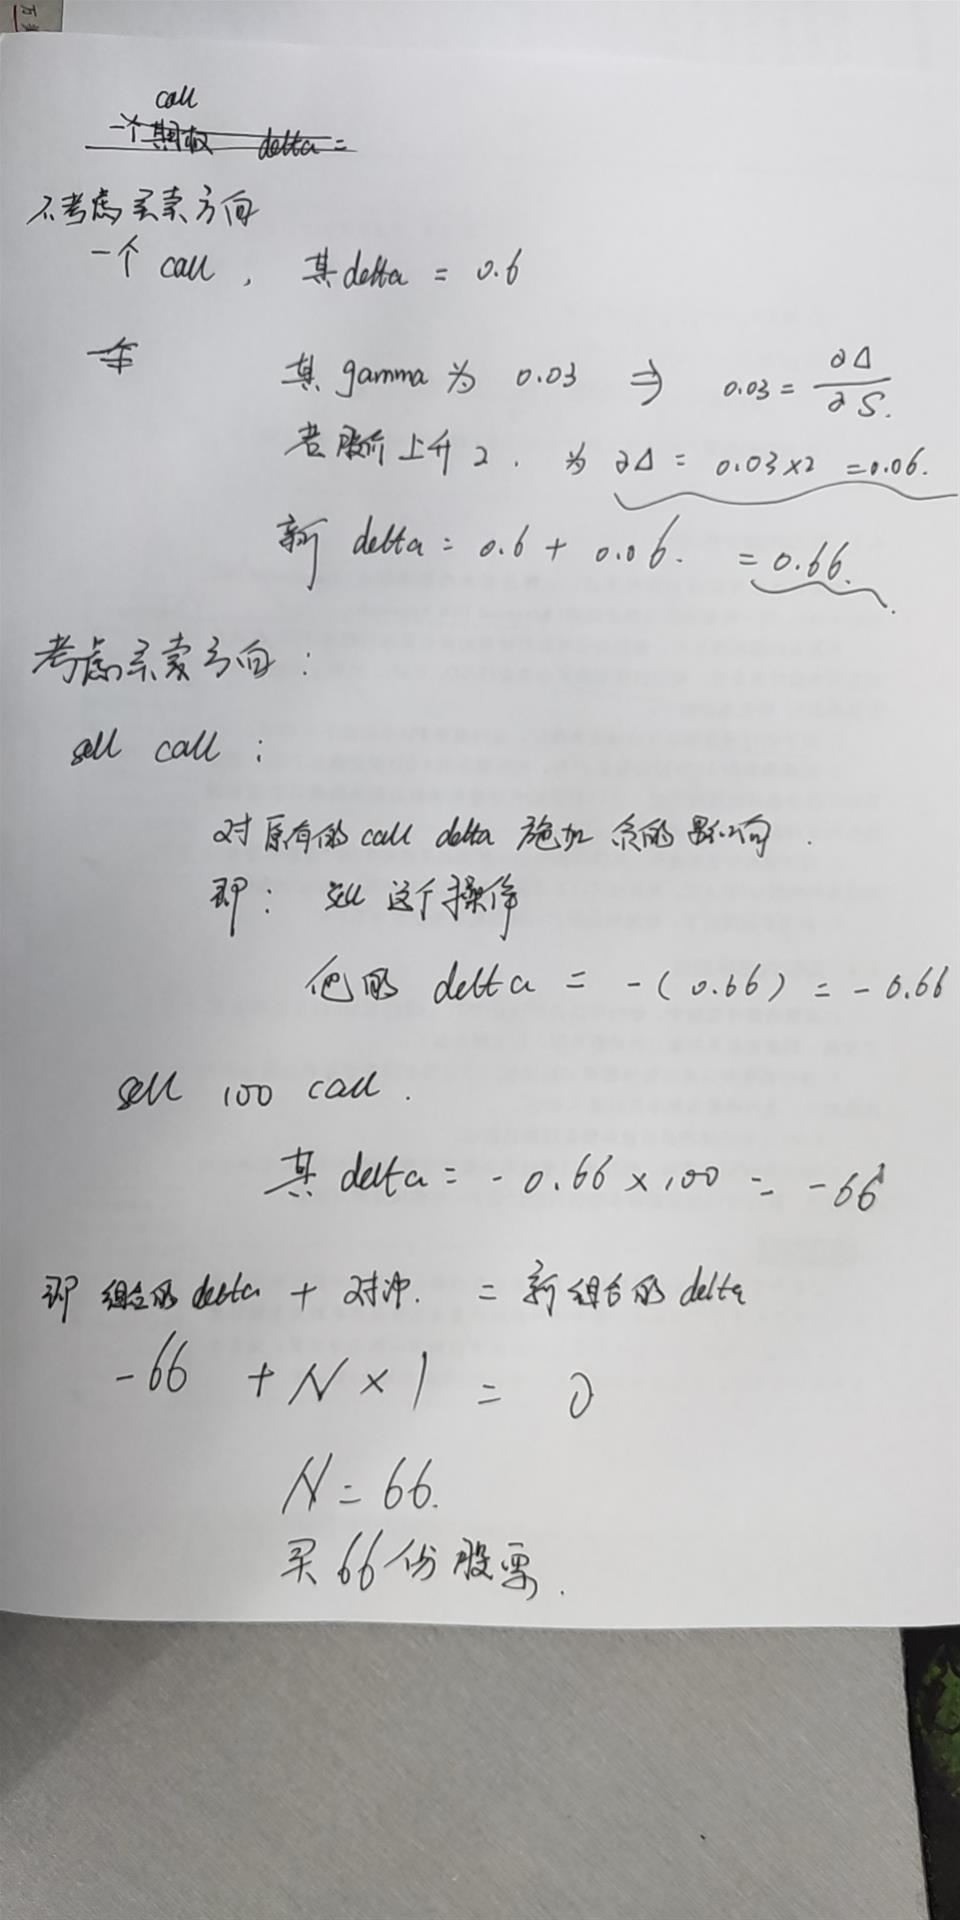 call
一个期权 delta =
不考虑买卖方向
一个 call , 其 delta = 0.6
其 gamma 为 0.03 ⇒ 0.03 = ∂Δ / ∂S.
若股价上升 2 . 为 ∂Δ = 0.03×2 = 0.06.
新 delta = 0.6 + 0.06. = 0.66.
考虑买卖方向 :
sell call :
对原有的 call delta 施加 负的影响 .
即 : sell 这个操作
他的 delta = - ( 0.66 ) = - 0.66
sell 100 call .
其 delta = - 0.66 × 100 = - 66
即 组合的 delta + 对冲. = 新组合的 delta
-66 + N × 1 = 0
N = 66.
买 66 份股票.